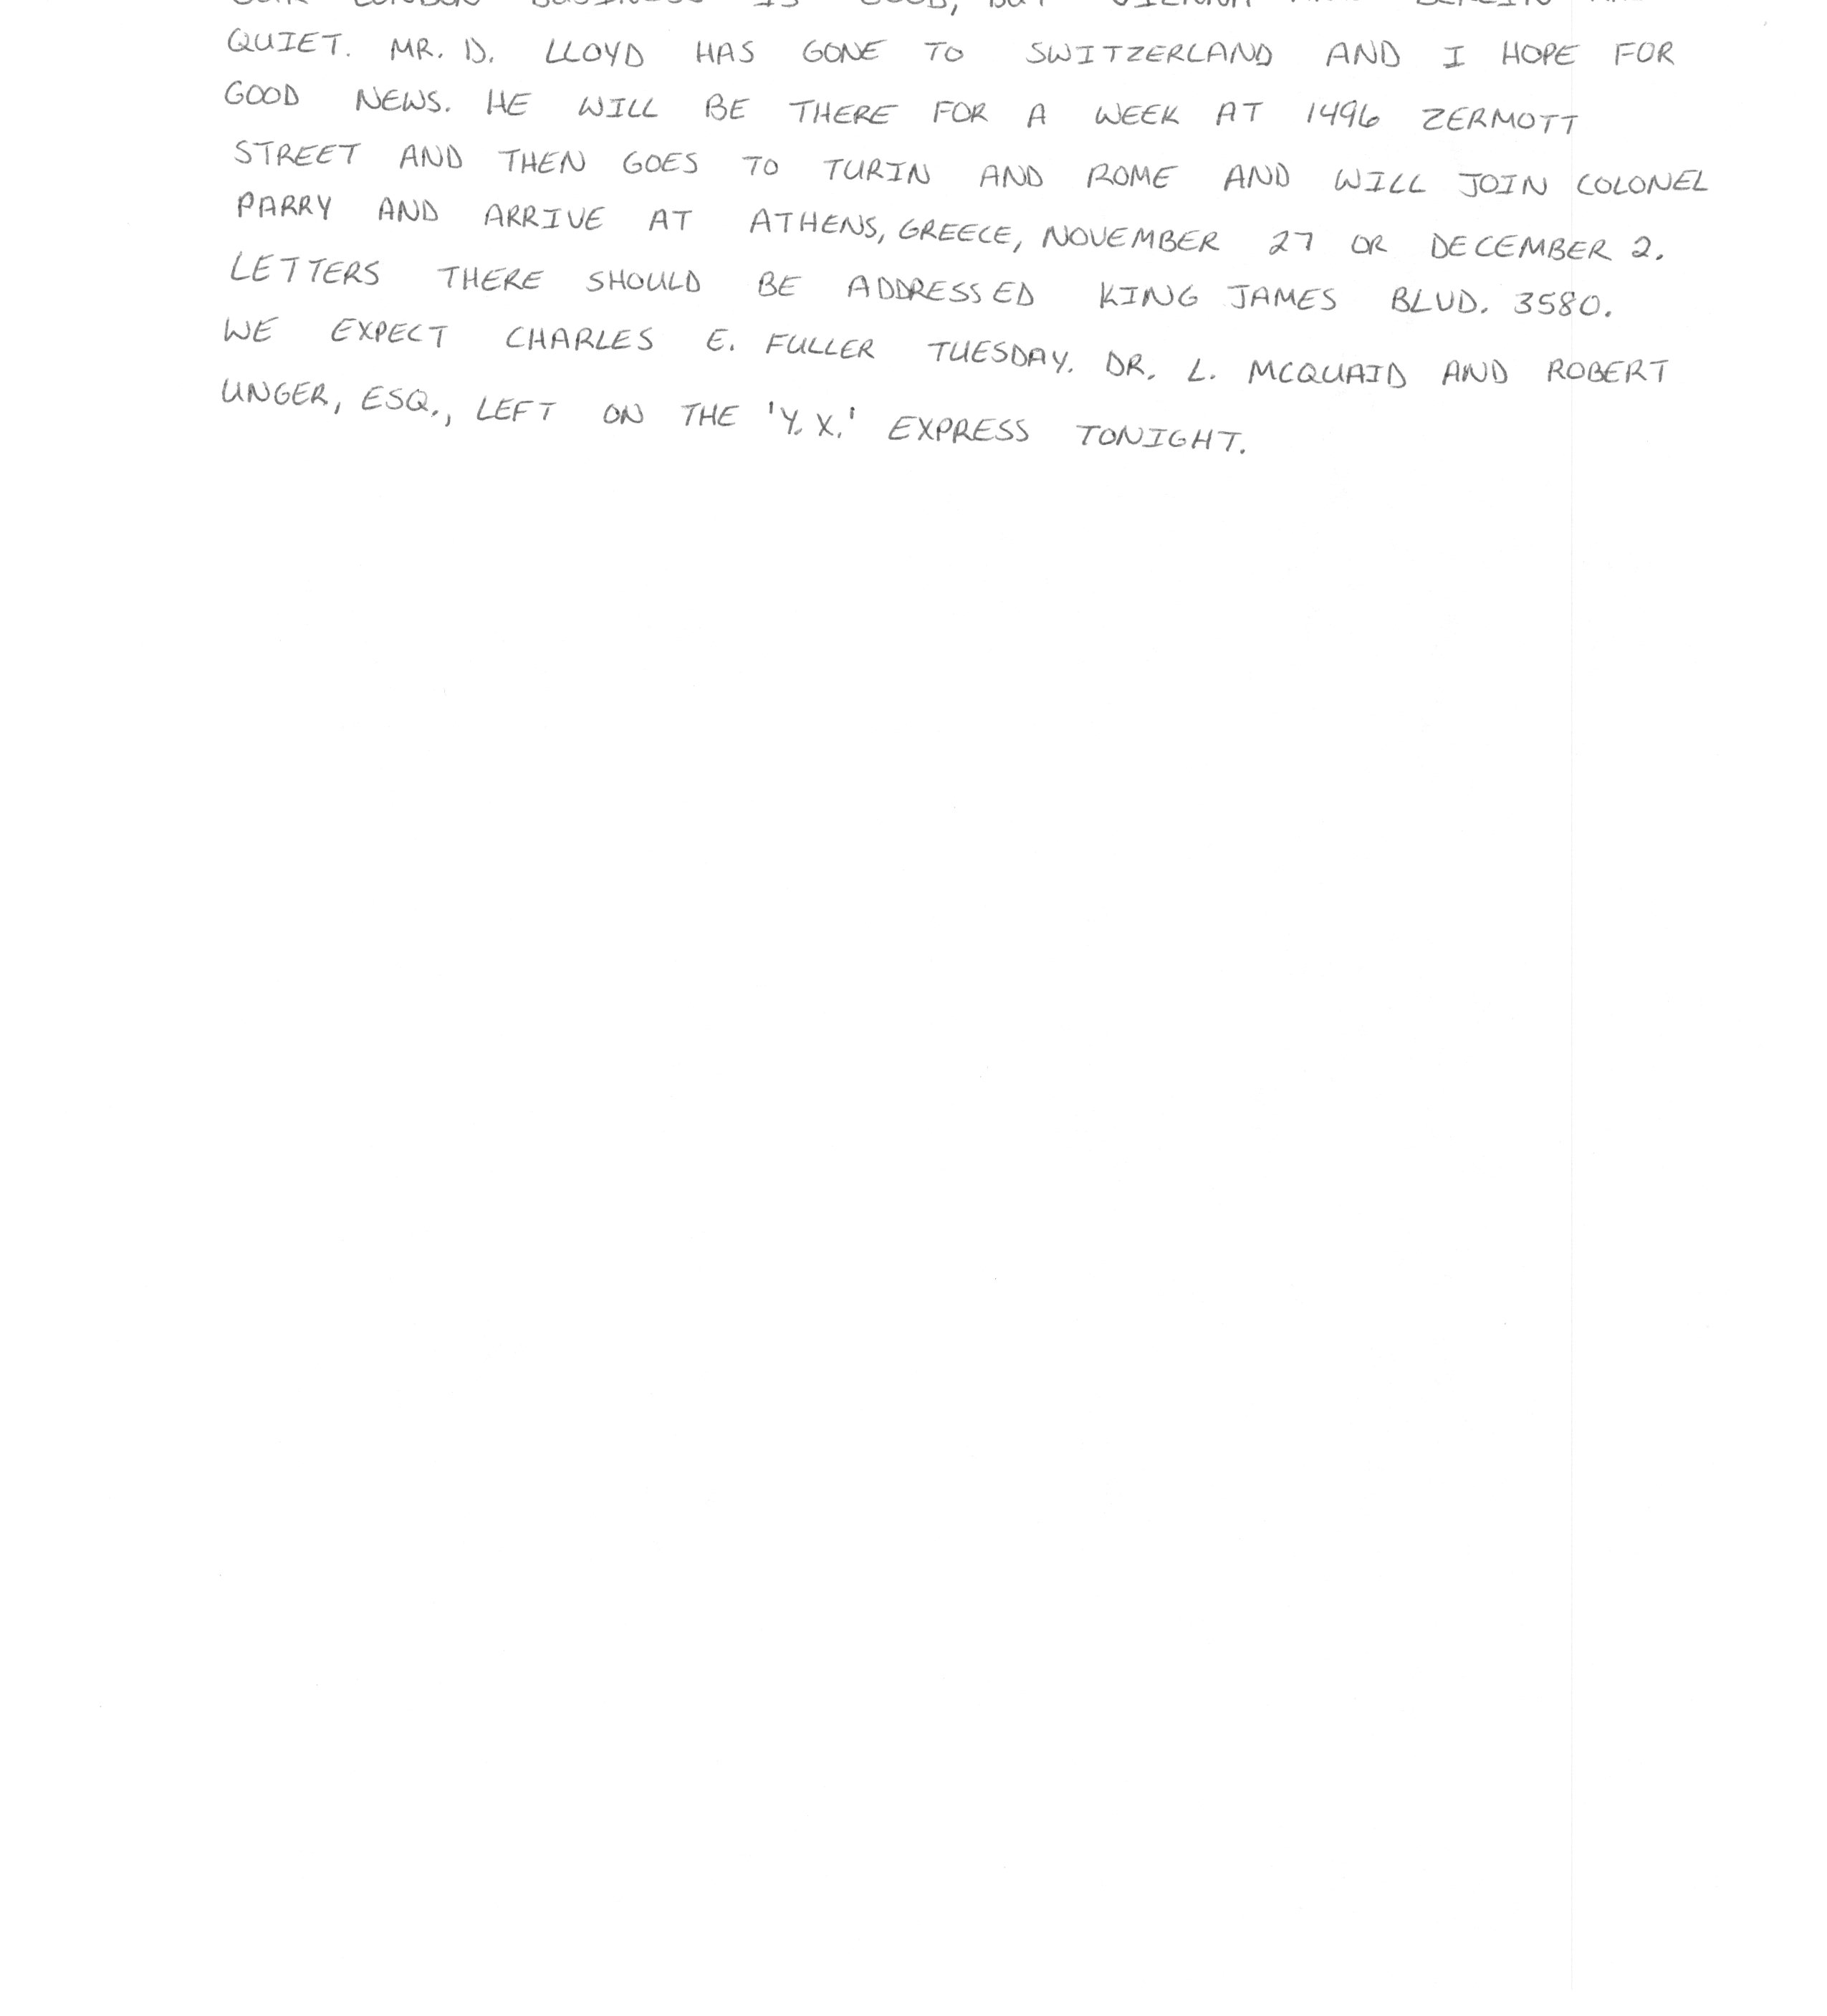 QUIET. MR. D. LLOYD HAS GONE TO SWITZERLAND AND I HOPE FOR
GOOD NEWS. HE WILL BE THERE FOR A WEEK AT 1496 ZERMOTT
STREET AND THEN GOES TO TURIN AND ROME AND WILL JOIN COLONEL
PARRY AND ARRIVE AT ATHENS, GREECE, NOVEMBER 27 OR DECEMBER 2.
LETTERS THERE SHOULD BE ADDRESSED KING JAMES BLVD. 3580.
WE EXPECT CHARLES E. FULLER TUESDAY. DR. L. MCQUAID AND ROBERT
UNGER, ESQ., LEFT ON THE 'Y. X.' EXPRESS TONIGHT.